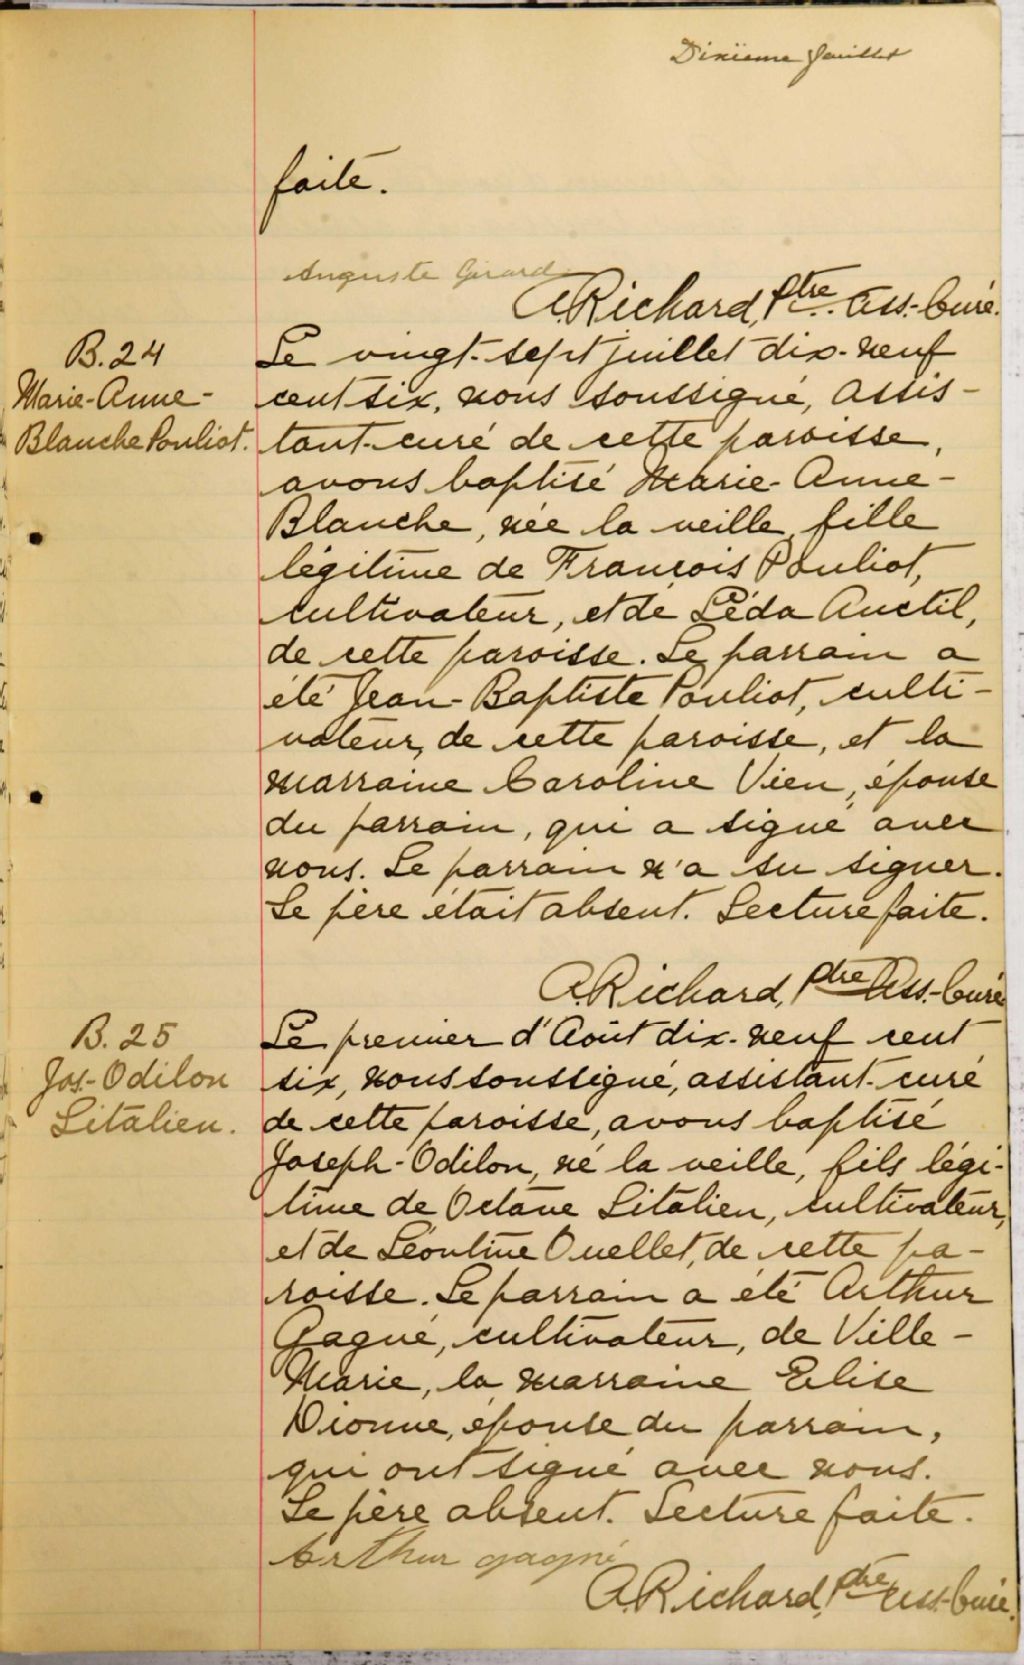 Dixième feuillet
faite.
Auguste Girard
A. Richard, Ptre Ass.-Curé.
B. 24
Marie-Anne-
Blanche Pouliot.
Le vingt-sept juillet dix-neuf
cent six, nous soussigné, assis-
tant-curé de cette paroisse,
avons baptisé Marie-Anne-
Blanche, née la veille, fille
légitime de François Pouliot,
cultivateur, et de Léda Anctil,
de cette paroisse. Le parrain a
été Jean-Baptiste Pouliot, culti-
vateur, de cette paroisse, et la
marraine Caroline Vien, épouse
du parrain, qui a signé avec
nous. Le parrain n'a su signer.
Le père était absent. Lecture faite.
A. Richard, Ptre Ass.-Curé
B. 25
Jos-Odilon
Litalien.
Le premier d'Août dix-neuf cent
six, nous soussigné, assistant-curé
de cette paroisse, avons baptisé
Joseph-Odilon, né la veille, fils légi-
time de Octave Litalien, cultivateur,
et de Léontine Ouellet, de cette pa-
roisse. Le parrain a été Arthur
Gagné, cultivateur, de Ville-
Marie, la marraine Elise
Dionne, épouse du parrain,
qui ont signé avec nous.
Le père absent. Lecture faite.
Arthur gagné
A. Richard, Ptre Ass.-Curé.